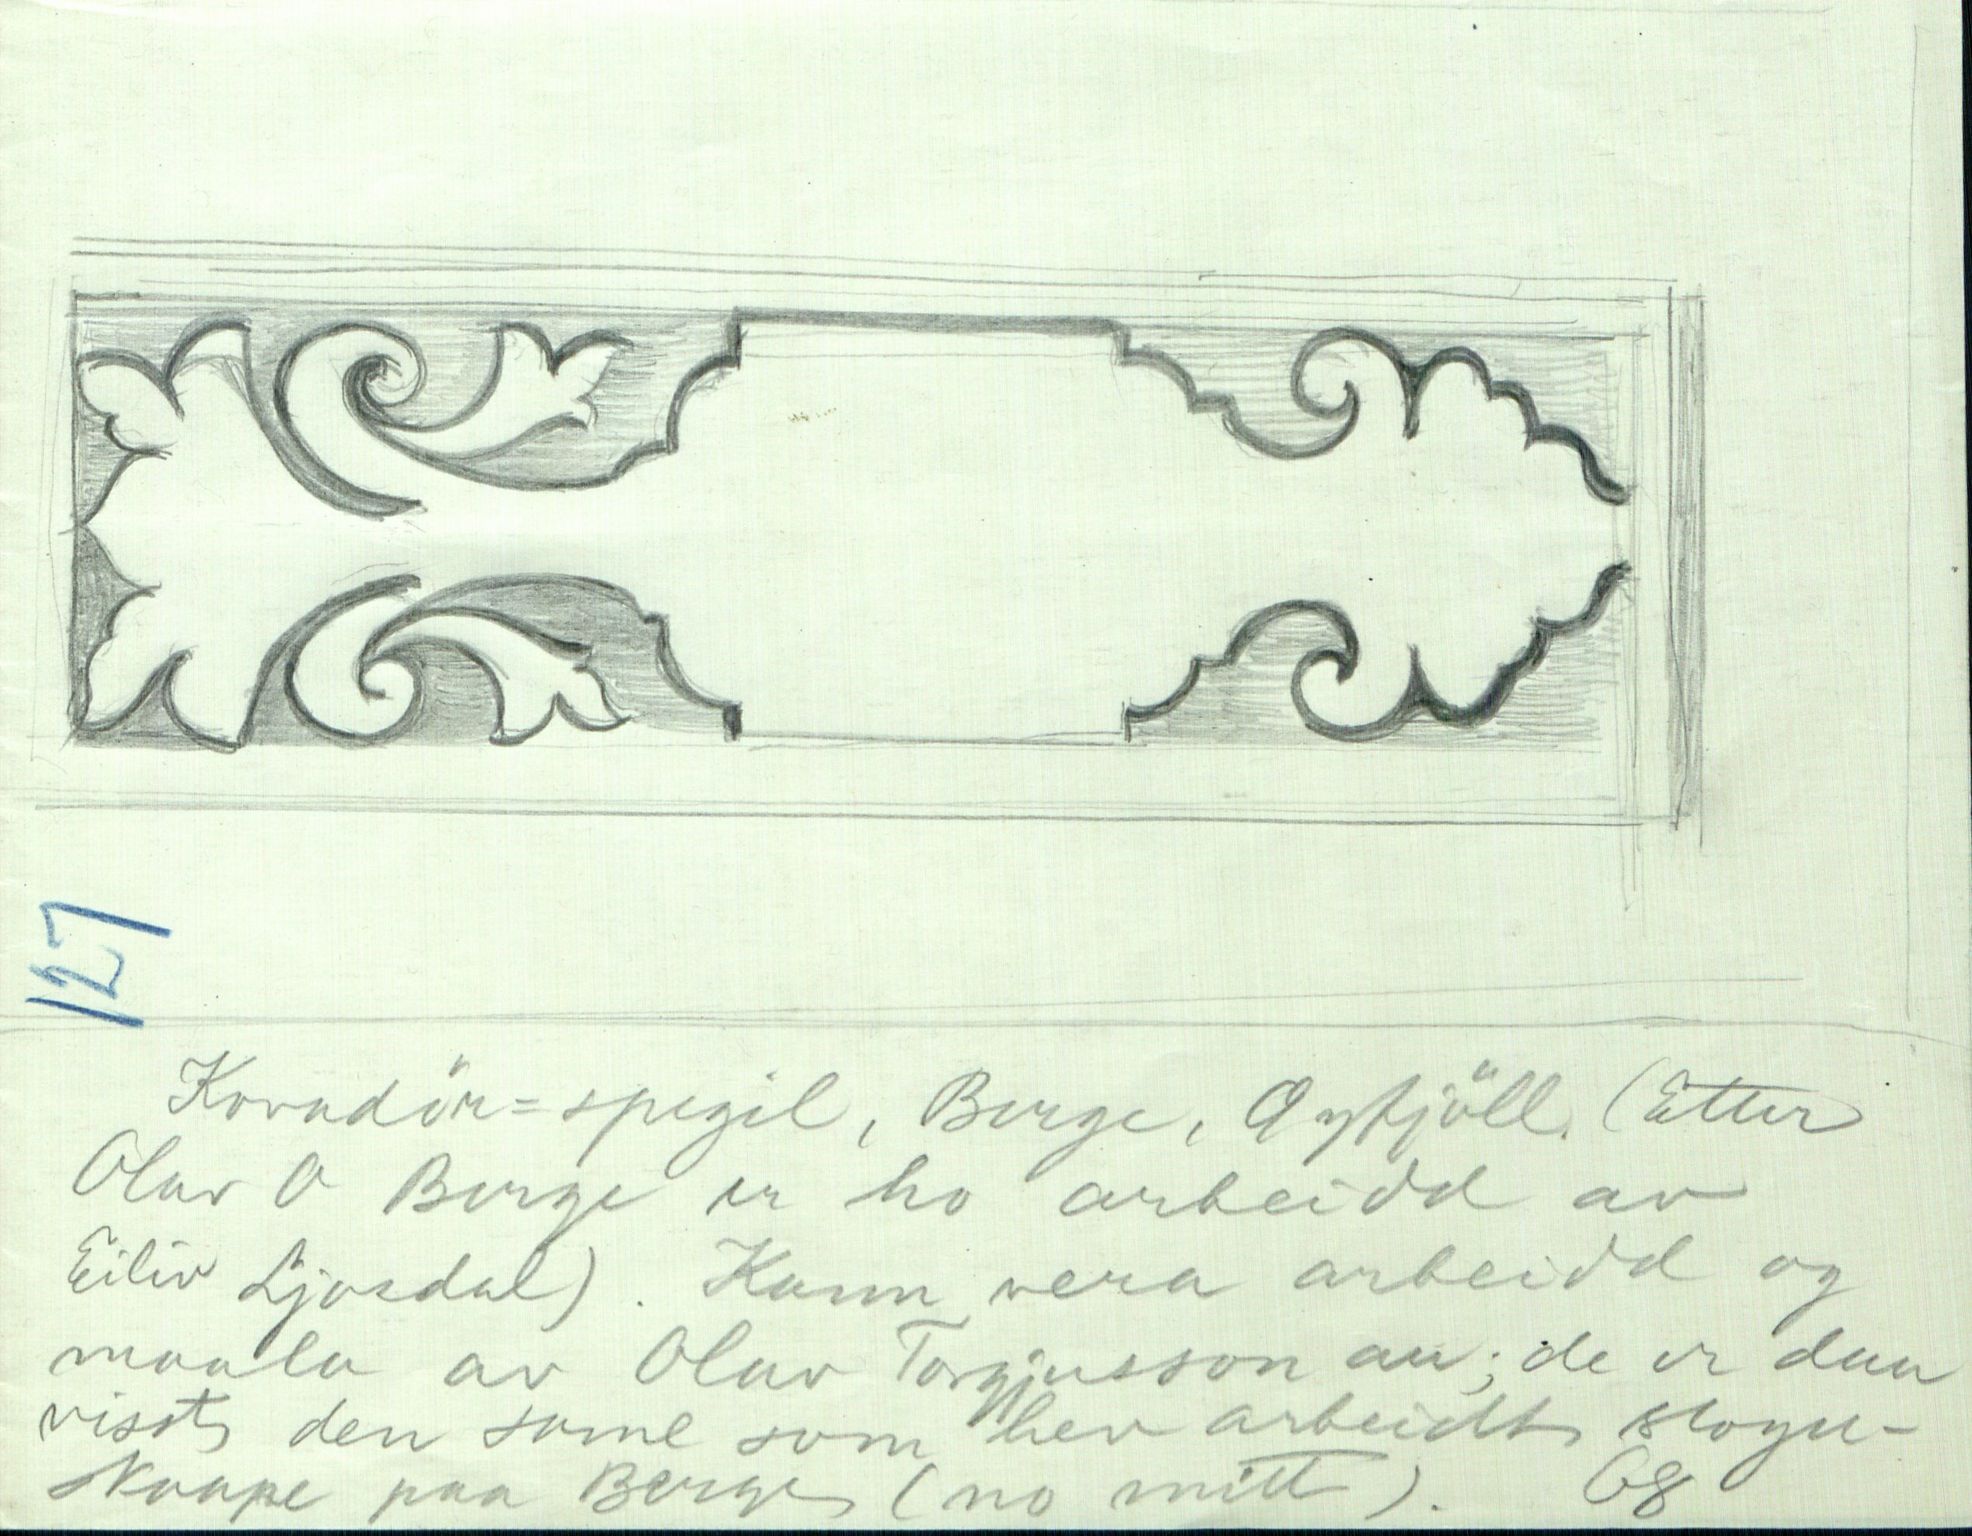 127
Kovadör=spegil, Berge, Öyfjöll. (Etter
Olav O Berge er ho arbeidd av
Eiliv Ljosdal). Kann vera arbeidd og
maala av Olav Torgjusson au; de er daa
visst den same som hev arbeidt stogu-
skaape paa Berge (no mitt). 08